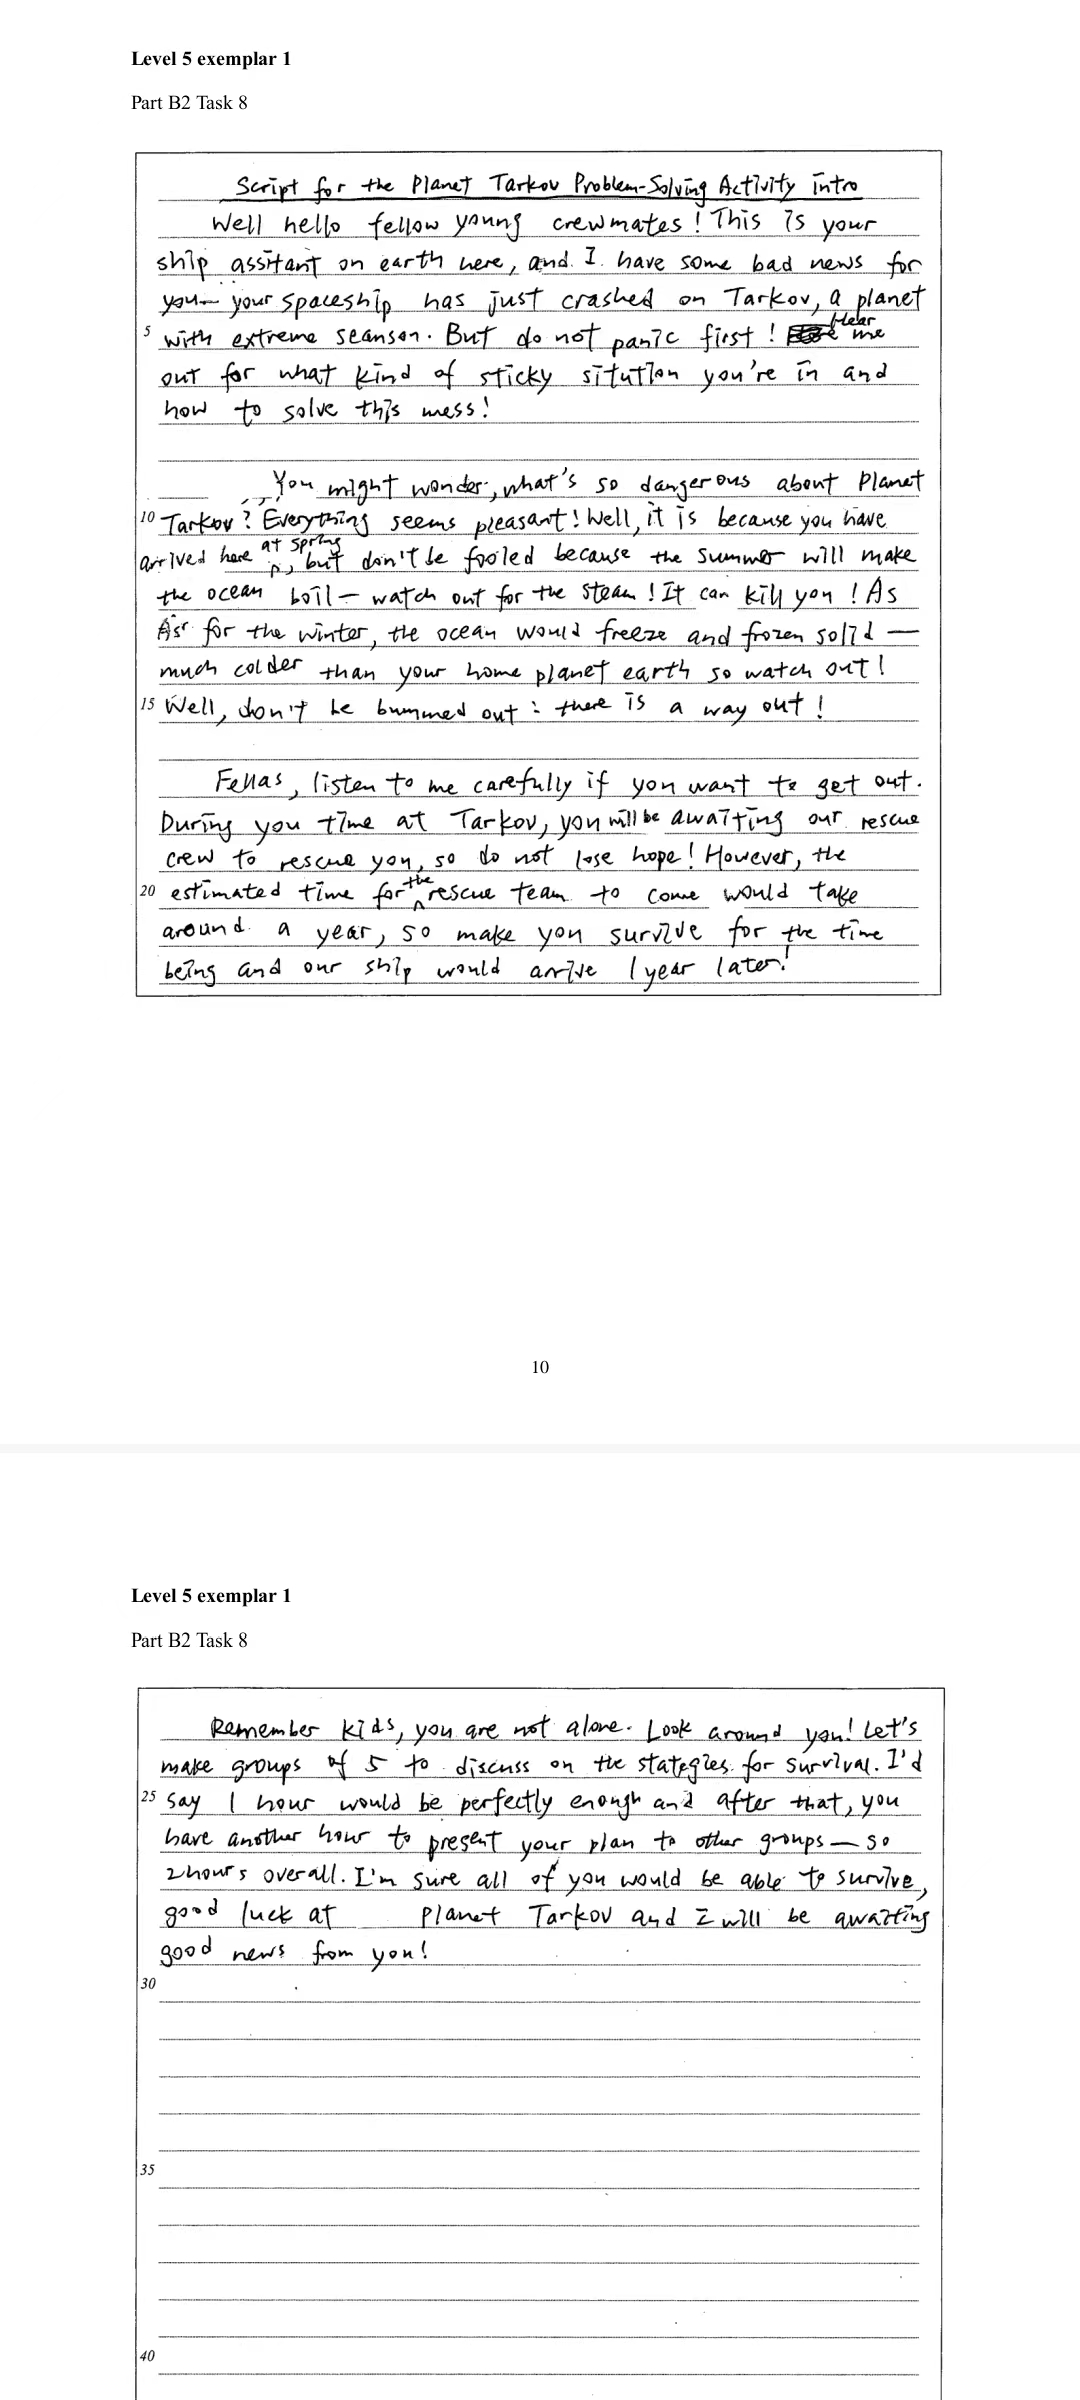 Level 5 exemplar 1
Part B2 Task 8
Script for the Planet Tarkov Problem-Solving Activity intro
Well hello fellow young crewmates! This is your
ship assitant on earth here, and I have some bad news for
you— your spaceship has just crashed on Tarkov, a planet
5 with extreme seanson. But do not panic first! Hear me
out for what kind of sticky sitution you're in and
how to solve this mess!
You might wonder, what's so dangerous about Planet
10 Tarkov? Everything seems pleasant! Well, it is because you have
arrived here at spring, but don't be fooled because the summer will make
the ocean boil — watch out for the steam! It can kill you! As
As for the winter, the ocean would freeze and frozen solid —
much colder than your home planet earth so watch out!
15 Well, don't be bummed out : there is a way out!
Fellas, listen to me carefully if you want to get out.
During you time at Tarkov, you will be awaiting our rescue
crew to rescue you, so do not lose hope! However, the
20 estimated time for the rescue team to come would take
around a year, so make you survive for the time
being and our ship would arrive 1 year later!
10
Level 5 exemplar 1
Part B2 Task 8
Remember kids, you are not alone. Look around you! Let's
make groups of 5 to discuss on the stategies for survival. I'd
25 say 1 hour would be perfectly enough and after that, you
have another hour to present your plan to other groups — so
2 hours overall. I'm sure all of you would be able to survive,
good luck at Planet Tarkov and I will be awaiting
good news from you!
30
35
40